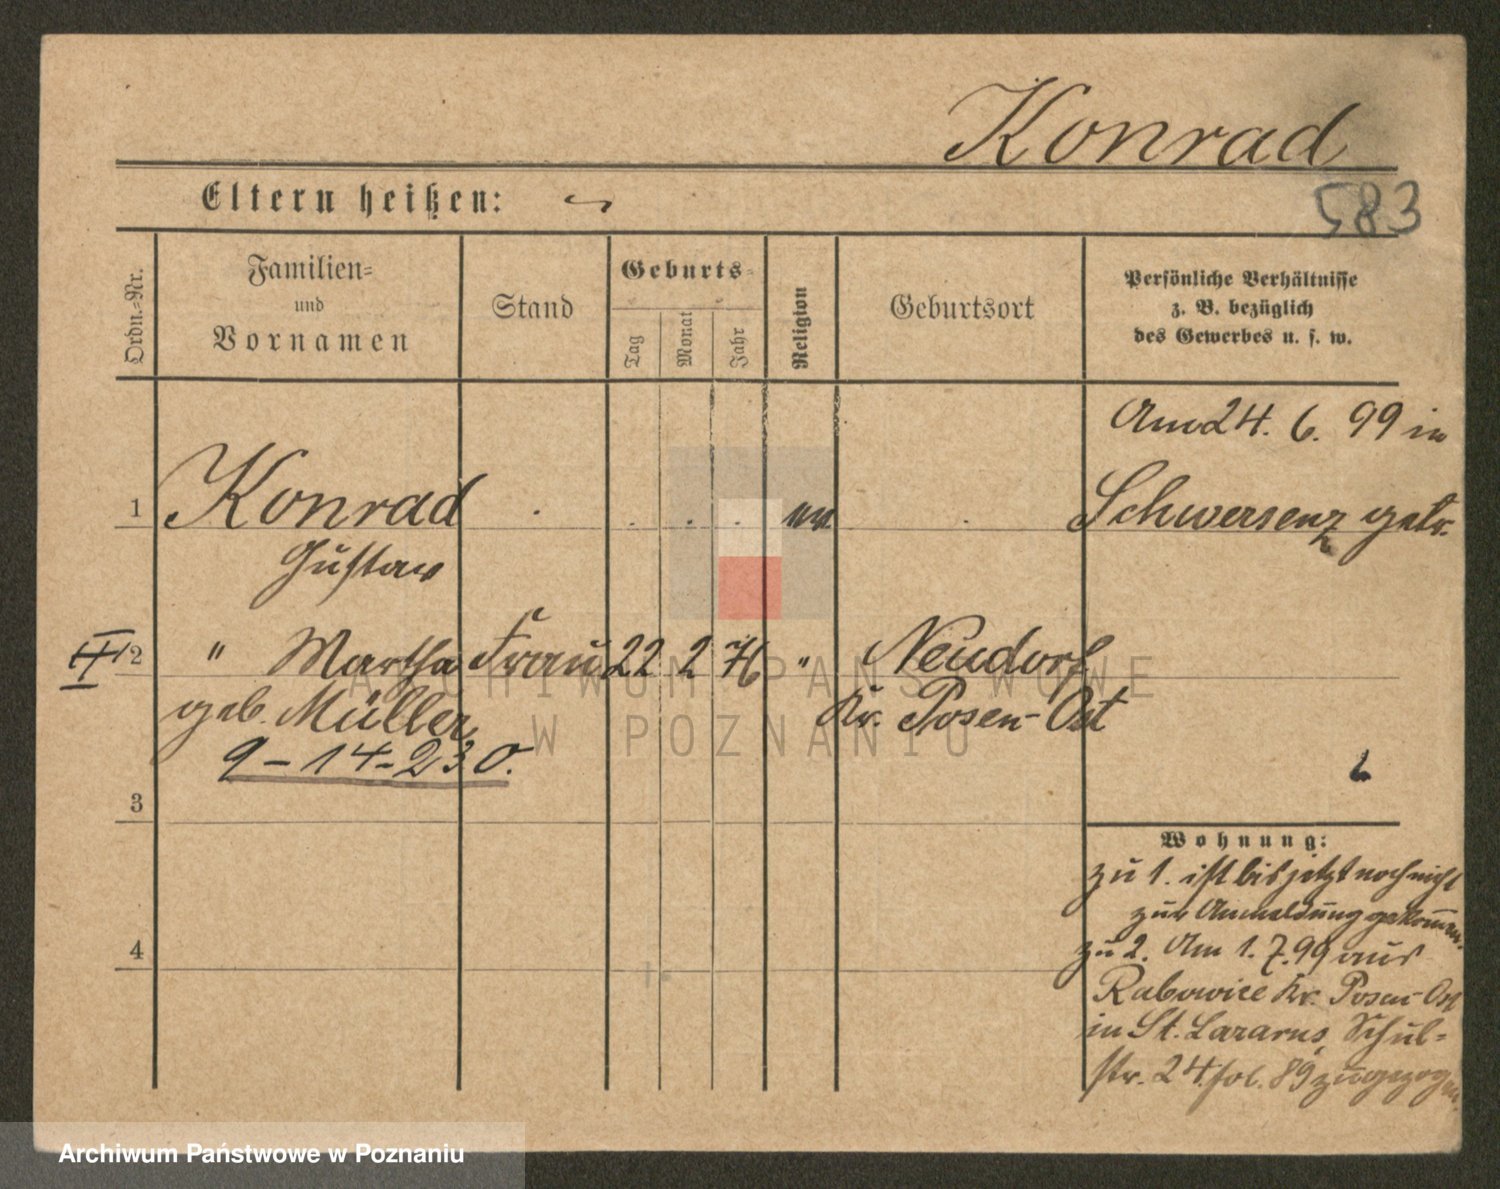 Konrad
Eltern heißen:
583
Ordn.-Nr.
Familien-
und
Vornamen
Stand
Geburts-
Tag
Monat
Jahr
Religion
Geburtsort
Persönliche Verhältnisse
z. B. bezüglich
des Gewerbes u. s. w.
Am 24. 6. 99 in
1 Konrad ev. Schwersenz getr.
Gustav
II 2 " Martha Frau 22 2 76 " Neudorf
geb. Müller Kr. Posen-Ost
9-14-230.
3
Wohnung:
zu 1. ist bis jetzt noch nicht
zur Anmeldung gekommen.
4
zu 2. Am 1. 7. 99 aus
Rabowice Kr. Posen-Ost
in St. Lazarus, Schul-
str. 24 fol. 89 zugezogen.
ARCHIWUM PAŃSTWOWE
W POZNANIU
Archiwum Państwowe w Poznaniu